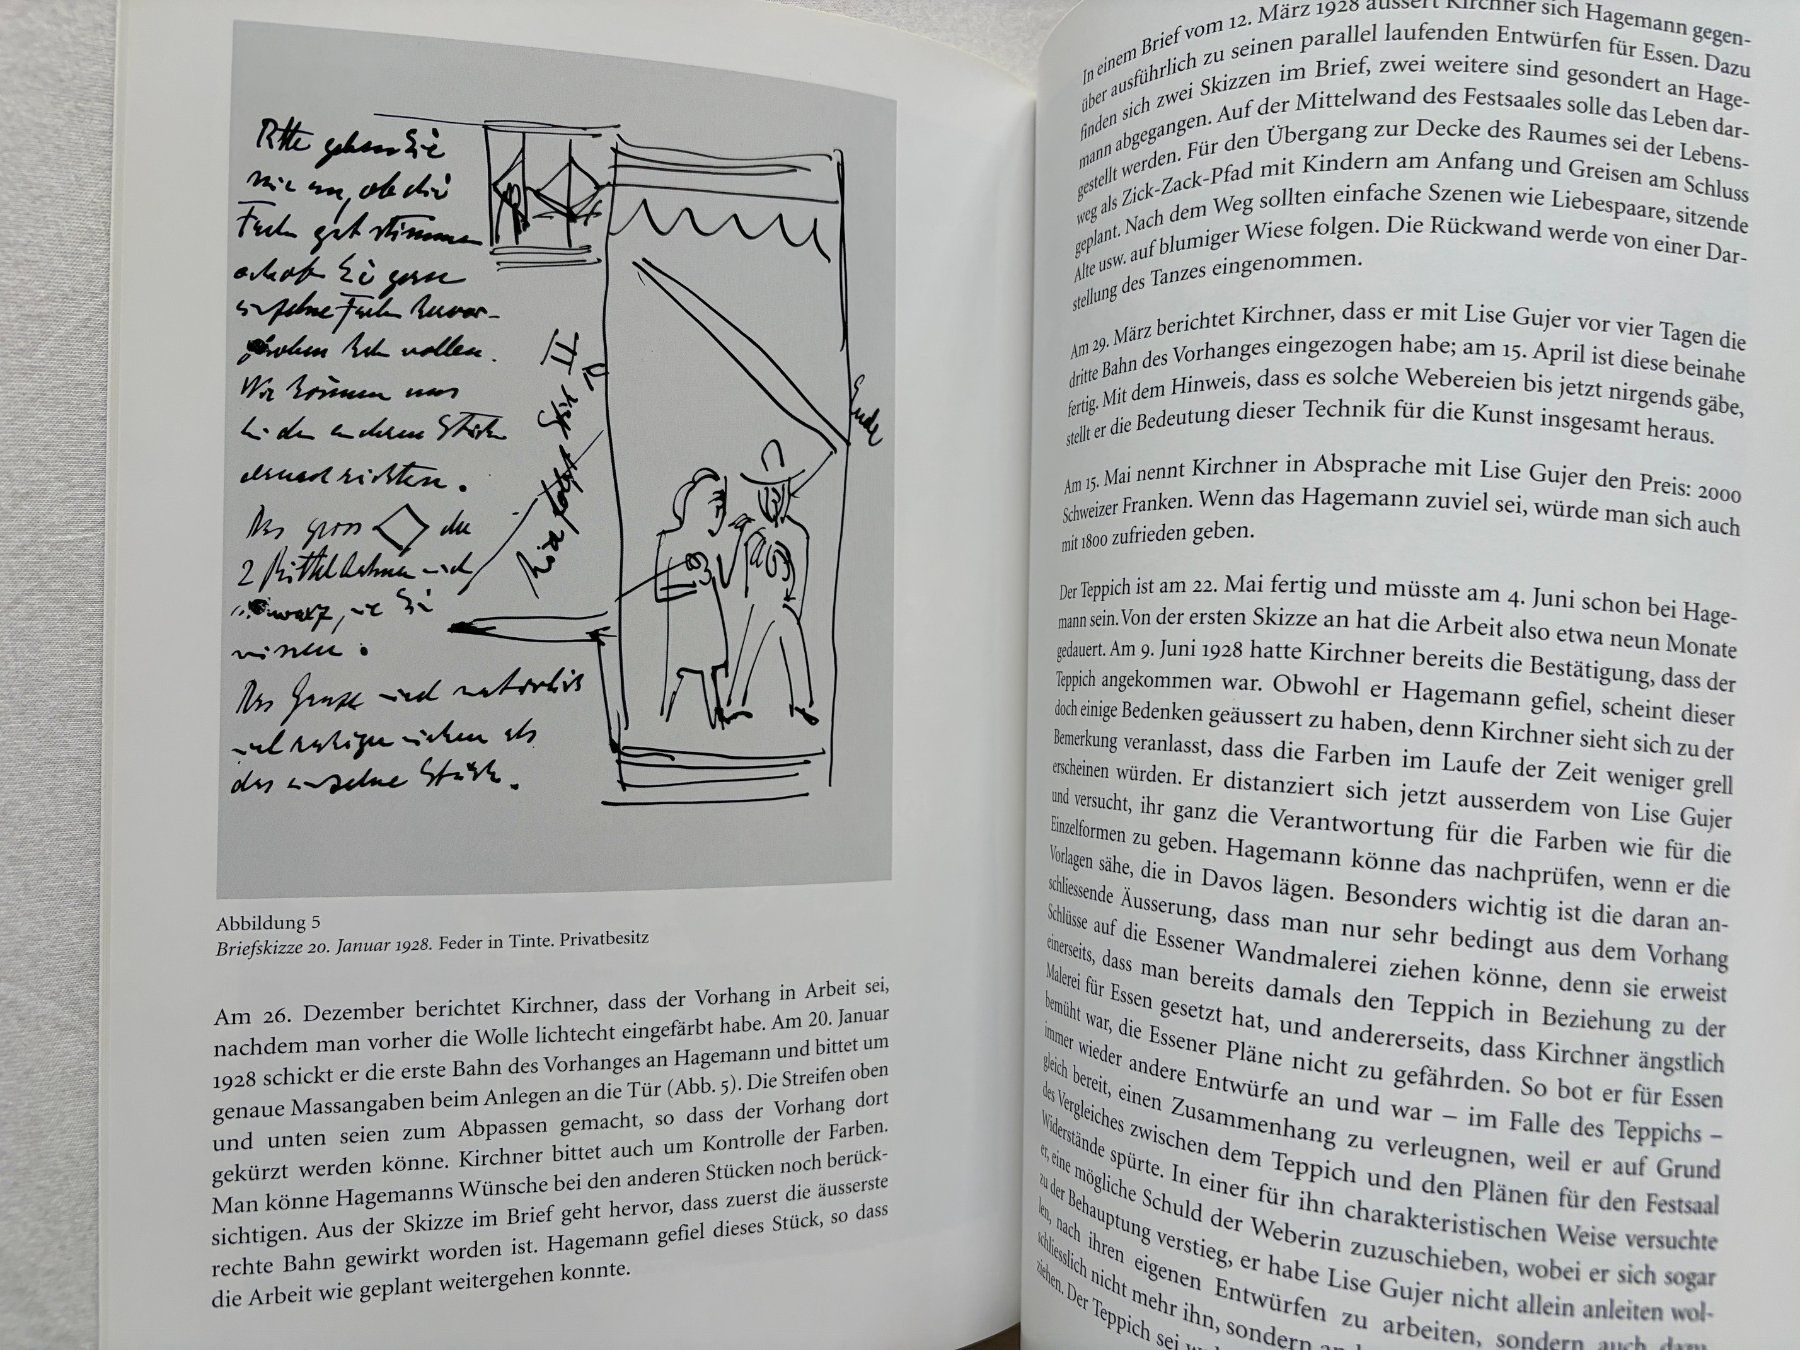 Bitte geben Sie
mir an, ob die
Farben gut stimmen
oder ob Sie gern
einzelne Farben hervor-
gehoben haben wollen.
Wir können uns
bei den anderen Stücken
danach richten.
Das gross ◇ der
2 Mittelbahnen wird
schwarz, wie Sie
wissen.
Das Ganze wird natürlich
viel ruhiger wirken als
das einzelne Stück.
hier folgt Stück II
Ende
Abbildung 5
Briefskizze 20. Januar 1928. Feder in Tinte. Privatbesitz
Am 26. Dezember berichtet Kirchner, dass der Vorhang in Arbeit sei,
nachdem man vorher die Wolle lichtecht eingefärbt habe. Am 20. Januar
1928 schickt er die erste Bahn des Vorhanges an Hagemann und bittet um
genaue Massangaben beim Anlegen an die Tür (Abb. 5). Die Streifen oben
und unten seien zum Abpassen gemacht, so dass der Vorhang dort
gekürzt werden könne. Kirchner bittet auch um Kontrolle der Farben.
Man könne Hagemanns Wünsche bei den anderen Stücken noch berück-
sichtigen. Aus der Skizze im Brief geht hervor, dass zuerst die äusserste
rechte Bahn gewirkt worden ist. Hagemann gefiel dieses Stück, so dass
die Arbeit wie geplant weitergehen konnte.
In einem Brief vom 12. März 1928 äussert Kirchner sich Hagemann gegen-
über ausführlich zu seinen parallel laufenden Entwürfen für Essen. Dazu
finden sich zwei Skizzen im Brief, zwei weitere sind gesondert an Hage-
mann abgegangen. Auf der Mittelwand des Festsaales solle das Leben dar-
gestellt werden. Für den Übergang zur Decke des Raumes sei der Lebens-
weg als Zick-Zack-Pfad mit Kindern am Anfang und Greisen am Schluss
geplant. Nach dem Weg sollten einfache Szenen wie Liebespaare, sitzende
Alte usw. auf blumiger Wiese folgen. Die Rückwand werde von einer Dar-
stellung des Tanzes eingenommen.
Am 29. März berichtet Kirchner, dass er mit Lise Gujer vor vier Tagen die
dritte Bahn des Vorhanges eingezogen habe; am 15. April ist diese beinahe
fertig. Mit dem Hinweis, dass es solche Webereien bis jetzt nirgends gäbe,
stellt er die Bedeutung dieser Technik für die Kunst insgesamt heraus.
Am 15. Mai nennt Kirchner in Absprache mit Lise Gujer den Preis: 2000
Schweizer Franken. Wenn das Hagemann zuviel sei, würde man sich auch
mit 1800 zufrieden geben.
Der Teppich ist am 22. Mai fertig und müsste am 4. Juni schon bei Hage-
mann sein. Von der ersten Skizze an hat die Arbeit also etwa neun Monate
gedauert. Am 9. Juni 1928 hatte Kirchner bereits die Bestätigung, dass der
Teppich angekommen war. Obwohl er Hagemann gefiel, scheint dieser
doch einige Bedenken geäussert zu haben, denn Kirchner sieht sich zu der
Bemerkung veranlasst, dass die Farben im Laufe der Zeit weniger grell
erscheinen würden. Er distanziert sich jetzt ausserdem von Lise Gujer
und versucht, ihr ganz die Verantwortung für die Farben wie für die
Einzelformen zu geben. Hagemann könne das nachprüfen, wenn er die
Vorlagen sähe, die in Davos lägen. Besonders wichtig ist die daran an-
schliessende Äusserung, dass man nur sehr bedingt aus dem Vorhang
Schlüsse auf die Essener Wandmalerei ziehen könne, denn sie erweist
einerseits, dass man bereits damals den Teppich in Beziehung zu der
Malerei für Essen gesetzt hat, und andererseits, dass Kirchner ängstlich
bemüht war, die Essener Pläne nicht zu gefährden. So bot er für Essen
immer wieder andere Entwürfe an und war – im Falle des Teppichs –
gleich bereit, einen Zusammenhang zu verleugnen, weil er auf Grund
des Vergleiches zwischen dem Teppich und den Plänen für den Festsaal
Widerstände spürte. In einer für ihn charakteristischen Weise versuchte
er, eine mögliche Schuld der Weberin zuzuschieben, wobei er sich sogar
zu der Behauptung verstieg, er habe Lise Gujer nicht allein anleiten wol-
len, nach ihren eigenen Entwürfen zu arbeiten, sondern auch dazu
schliesslich nicht mehr ihn, sondern
ziehen. Der Teppich sei